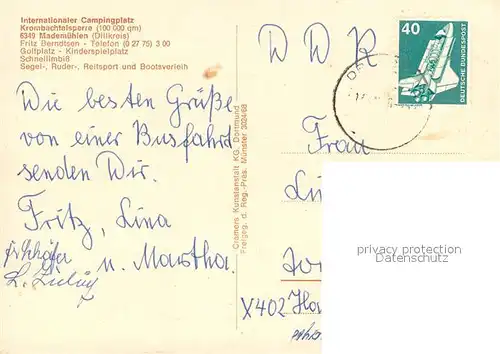 Internationaler Campingplatz
Krombachtalsperre (100 000 qm)
6349 Mademühlen (Dillkreis)
Fritz Berndtsen - Telefon (0 27 75) 3 00
Golfplatz - Kinderspielplatz
Schnellimbiß
Segel-, Ruder-, Reitsport und Bootsverleih
Die besten Grüße
von einer Busfahrt
senden Wir.
Fritz, Lina
u. Martha.
Cramers Kunstanstalt KG, Dortmund
Freigeg. d. Reg.-Präs. Münster 3024/68
DDR
40
DEUTSCHE BUNDESPOST
Frau
privacy protection
Datenschutz
X402